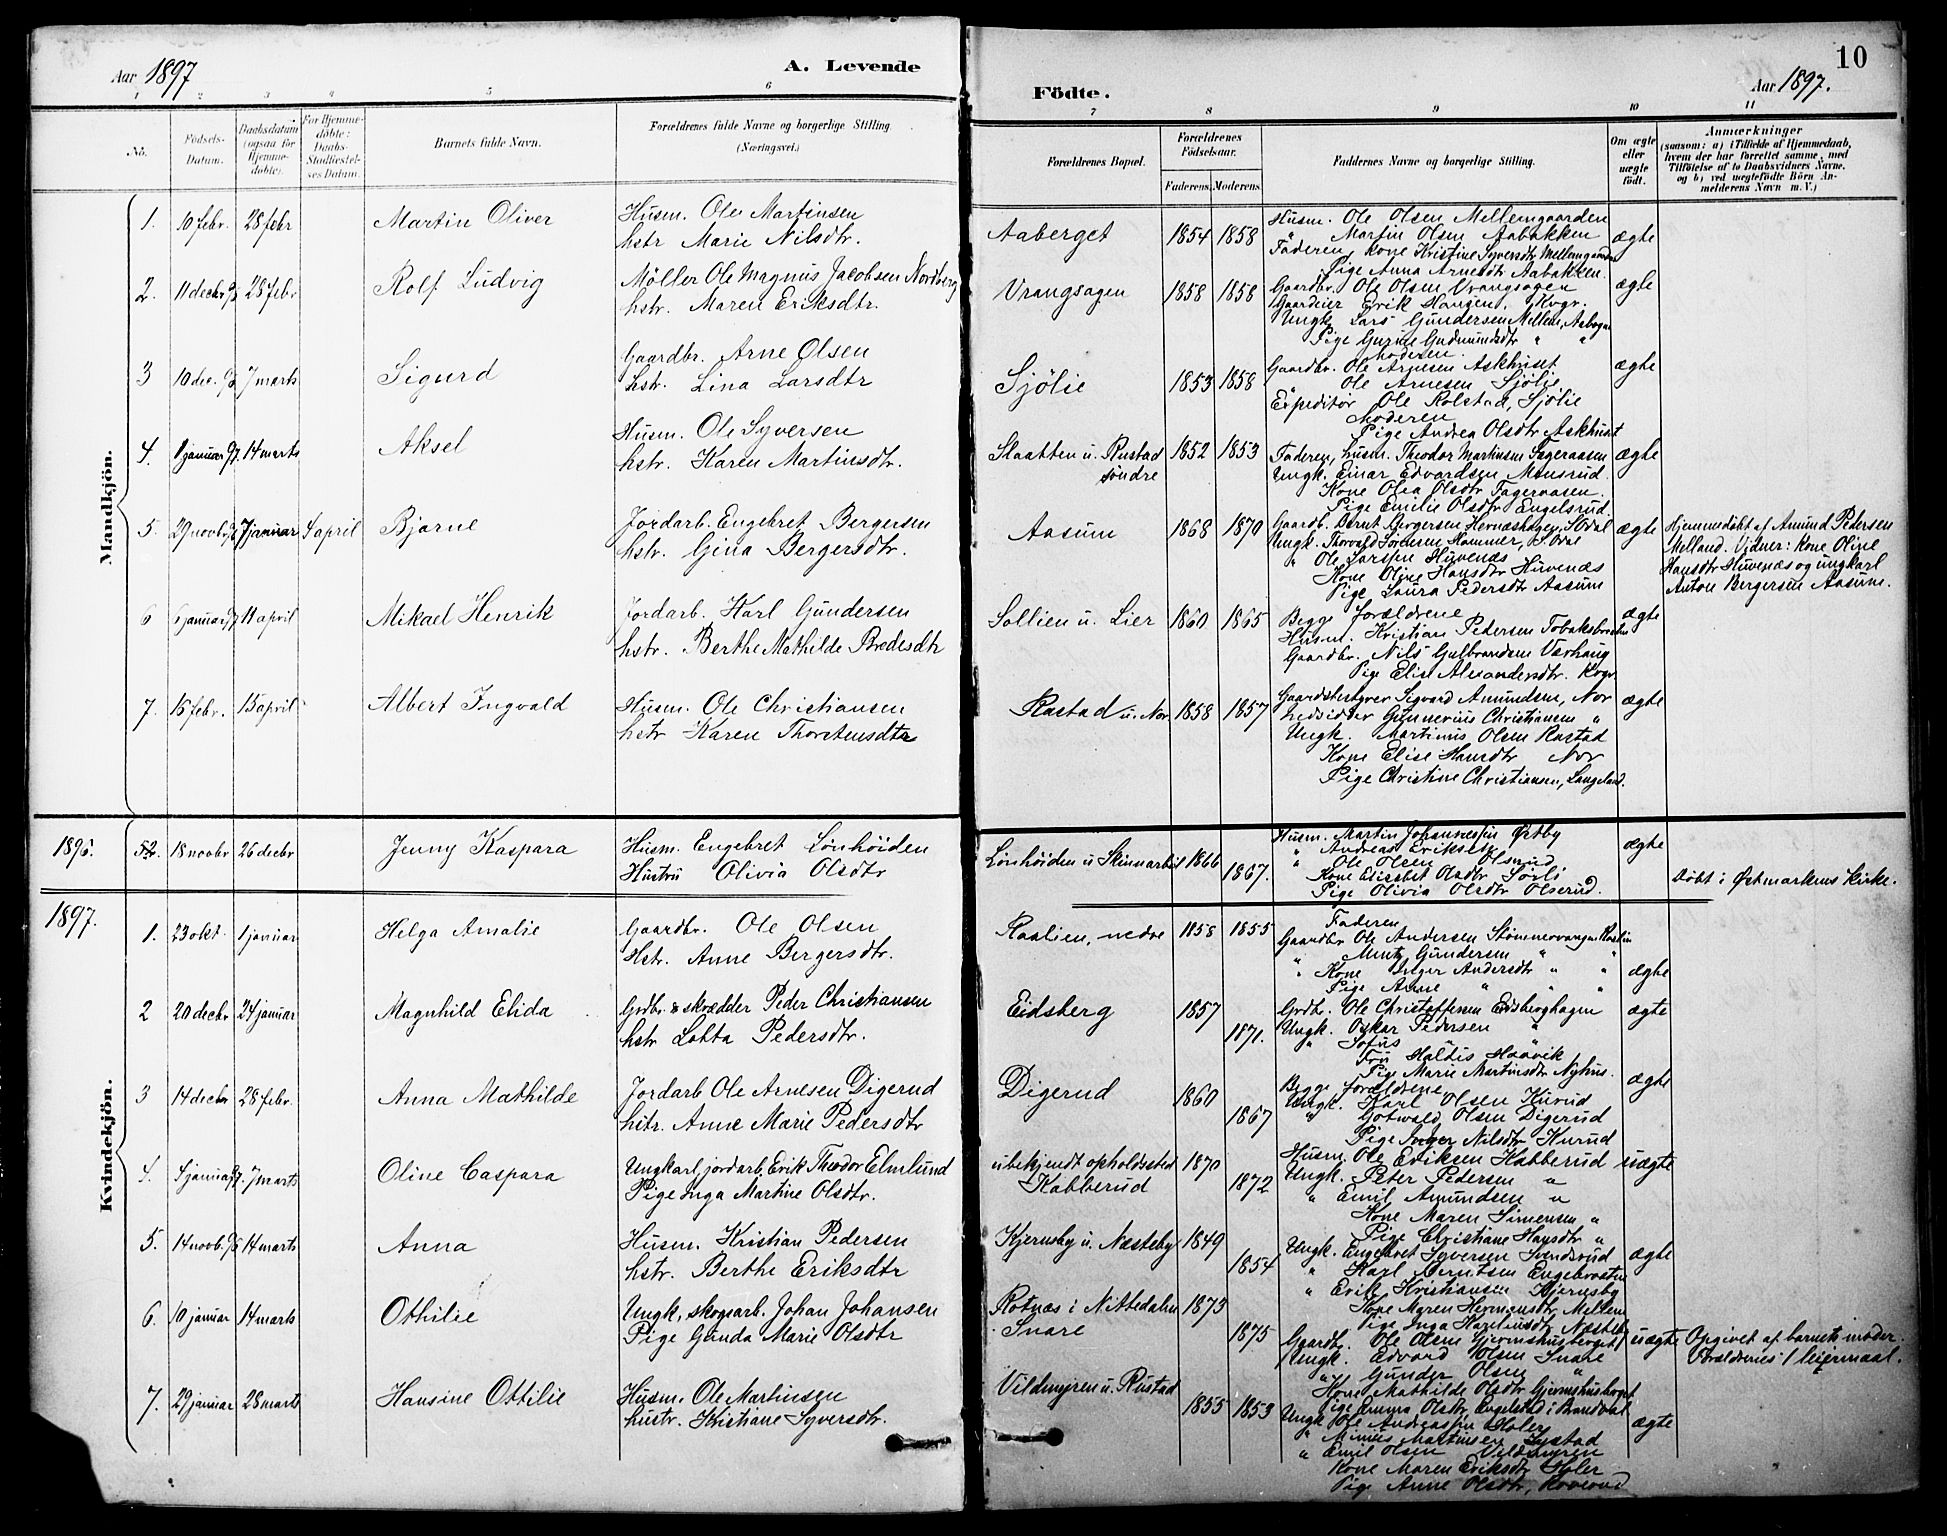 Aar 1897
A. Levende
Födte.
Aar 1897.
10
1 2 3 4 5 6 7 8 9 10 11
No.
Födsels-
Datum.
Daabsdatum
(ogsaa for
Hjemme-
döbte).
For Hjemme-
döbte:
Daabs-
Stadfæstel-
ses Datum.
Barnets fulde Navn.
Forældrenes fulde Navne og borgerlige Stilling.
(Næringsvei.)
Forældrenes Bopæl.
Forældrenes
Födselsaar.
Faderens. Moderens.
Faddernes Navne og borgerlige Stilling.
Om ægte
eller
uægte
födt.
Anmærkninger
(saasom: a) i Tilfælde af Hjemmedaab,
hvem der har forrettet samme, med
Tilföielse af to Daabsvidners Navne,
og b) ved uægtefödte Börn An-
melderens Navn m. V.)
Mandkjön.
1. 10 febr. 28 febr Martin Oliver
Husm. Ole Martinsen
hstr Marie Nilsdtr.
Aaberget 1854 1858
Husm. Ole Olsen Mellemgaarden
" Martin Olsen Aabakken
Faderen, kone Kristine Syversdtr Mellemgaarden
Pige Anna Arnesdtr Aabakken.
ægte
2. 11 decbr 96 28 febr Rolf Ludvig
Möller Ole Magnus Jacobsen Nordberg
hstr. Maren Eriksdtr.
Vrangsagen 1858 1858
Gaardbr. Ole Olsen Vrangsagen
Gaardeier Erik Haugen, Kvgr.
Ungk. Lars Gundersen Mellem, Aabogen
Pige Gurine Gudmundsdtr " "
Moderen.
ægte
3 10 dec. 96 7 marts Sigurd
Gaardbr. Arne Olsen
hstr. Lina Larsdtr
Sjölie 1853 1858
Gaardbr. Ole Arnesen Askhuset
" Ole Arnesen Sjölie
Expeditör Ole Rolstad, Sjölie
Moderen
Pige Andrea Olsdtr Askhuset
ægte
4. 1 januar 97. 14 marts Aksel
Husm. Ole Syversen
hstr. Karen Martinsdtr.
Slaatten u. Rustad
söndre
1852 1853
Faderen, husm. Theodor Martinsen Fageraasen
Ungk. Einar Edvardsen Monsrud
Kone Olea Olsdtr Fageraasen.
Pige Emilie Olsdtr Engelsrud.
ægte
5. 29 novbr 96 7 januar 4 april Bjarne
Jordarb. Engebret Bergersen
hstr. Gina Bergersdtr.
Aasum 1868 1870
Gaardb. Bernt Bergersen Hernæshagen, S. Odal
Ungk. Thorvald Sörensen Hammer, S. Odal
" Ole Larsen Huvenæs
Kone Oline Hansdtr Huvenæs
Pige Laura Pedersdtr Aasum
ægte
Hjemmedöbt af Amund Pedersen
Melland. Vidner: kone Oline
Hansdtr Huvenæs og ungkarl
Anton Bergersen Aasum.
6 6 januar 97 11 april Mikael Henrik
Jordarb. Karl Gundersen
hstr. Berthe Mathilde Bredesdtr
Sollien u. Lier 1860 1865
Begge forældrene
Husm. Kristian Pedersen Tobaksbraaten
Gaardbr. Nils Gulbrandsen Værhaug
Pige Elise Alexandersdtr. Kvgr.
ægte
7. 16 febr. 15 april Albert Ingvald
Husm. Ole Christiansen
hstr Karen Thorstensdtr
Rastad u. Nor 1858 1857
Gaardsbestyrer Sigvard Amundsen, Nor
Indsidder Gunnerius Christiansen "
Ungk. Martinus Olsen Rastad
Kone Elise Hansdtr Nor
Pige Christine Christiansen, Langeland.
ægte
1896. 52. 18 novbr 26 decbr Jenny Kaspara
Husm. Engebret Lönhöiden
Hustru Olivia Olsdtr
Lönhöiden u Skinnarböl 1866
1867.
Husm. Martin Johannesen Östby
" Andreas Eriksen
" Ole Olsen Olserud
Kone Elisabet Olsdtr Sörli
Pige Olivia Olsdtr Olserud.
ægte
Döbt i Östmarkens kirke.
1897.
Kvindekjön.
1. 23 okt. 1 januar Helga Amalie
Gaardbr. Ole Olsen
Hstr. Anne Bergersdtr.
Raalien, nedre 1858 1855
Faderen
Gaardbr Ole Andersen Stömnervangen Raalien
" Mentz Gundersen " "
" Kone Inger Andersdtr " "
Pige Anne " " "
ægte
2 20 decbr 24 januar Magnhild Elida
Grdbr. & skrædder Peder Christiansen
hstr Lotta Pedersdtr.
Eidsberg 1857
1871.
Grdbr. Ole Christoffersen Eidsberghagen
Ungk. Oskar Pedersen "
" Sofus " "
Fru Haldis Haavik
Pige Marie Martinsdtr Nyhus.
ægte
3 14 decbr 28 febr. Anna Mathilde
Jordarb Ole Arnesen Digerud
hstr. Anne Marie Pedersdtr
Digerud 1860
1867
Begge forældrene
Ungk. Karl Olsen Kurud
" Gotwald Olsen Digerud
Pige Inger Nilsdtr Kurud
ægte
4. 4 januar 97. 7 marts Oline Caspara
Ungkarl, jordarb. Erik Theodor Elmlund
Pige Inga Martine Olsdtr.
ubekjendt opholdssted
Kabberud
1870
1872
Husm. Ole Eriksen Kabberud
Ungk. Peter Pedersen "
" Emil Amundsen "
Kone Maren Simensen "
Pige Christiane Hansdtr "
uægte
5. 14 novb. 96 14 marts Anna
Husm. Kristian Pedersen
hstr. Berthe Eriksdtr
Kjernsby u. Næsteby 1849
1854
Ungk. Engebret Syversen Svendsrud
" Karl Berntsen Engebraaten
" Erik Kristiansen Kjernsby
Kone Maren Hermansdtr Mellem
Pige Inga Haraldsdtr Næsteby
ægte
6. 10 januar 14 marts Othilie
Ungk, skogsarb. Johan Johansen
Pige Gunda Marie Olsdtr
Rotnæs i Nittedalen
Snare
1873
1875
Gaardb. Ole Olsen Gjermshusberget
Ungk. Edvard Olsen Snare
" Gunder Olsen "
Kone Mathilde Olsdtr Gjermshusberget
Pige Emma Olsdtr Engelstad i Brandval
uægte
Opgivet af barnets moder.
Forældrenes 1 leiermaal.
7. 29 januar 28 marts Hansine Ottilie
Husm. Ole Martinsen
hustr. Kristiane Syversdtr.
Vildmyren u. Rustad
1855 1853
Ungk. Ole Andreassen Holer
" Minius Martinsen Lystad
" Emil Olsen Vildmyren
Kone Maren Eriksdtr Holer
Pige Anne Olsdtr, Roverud
ægte